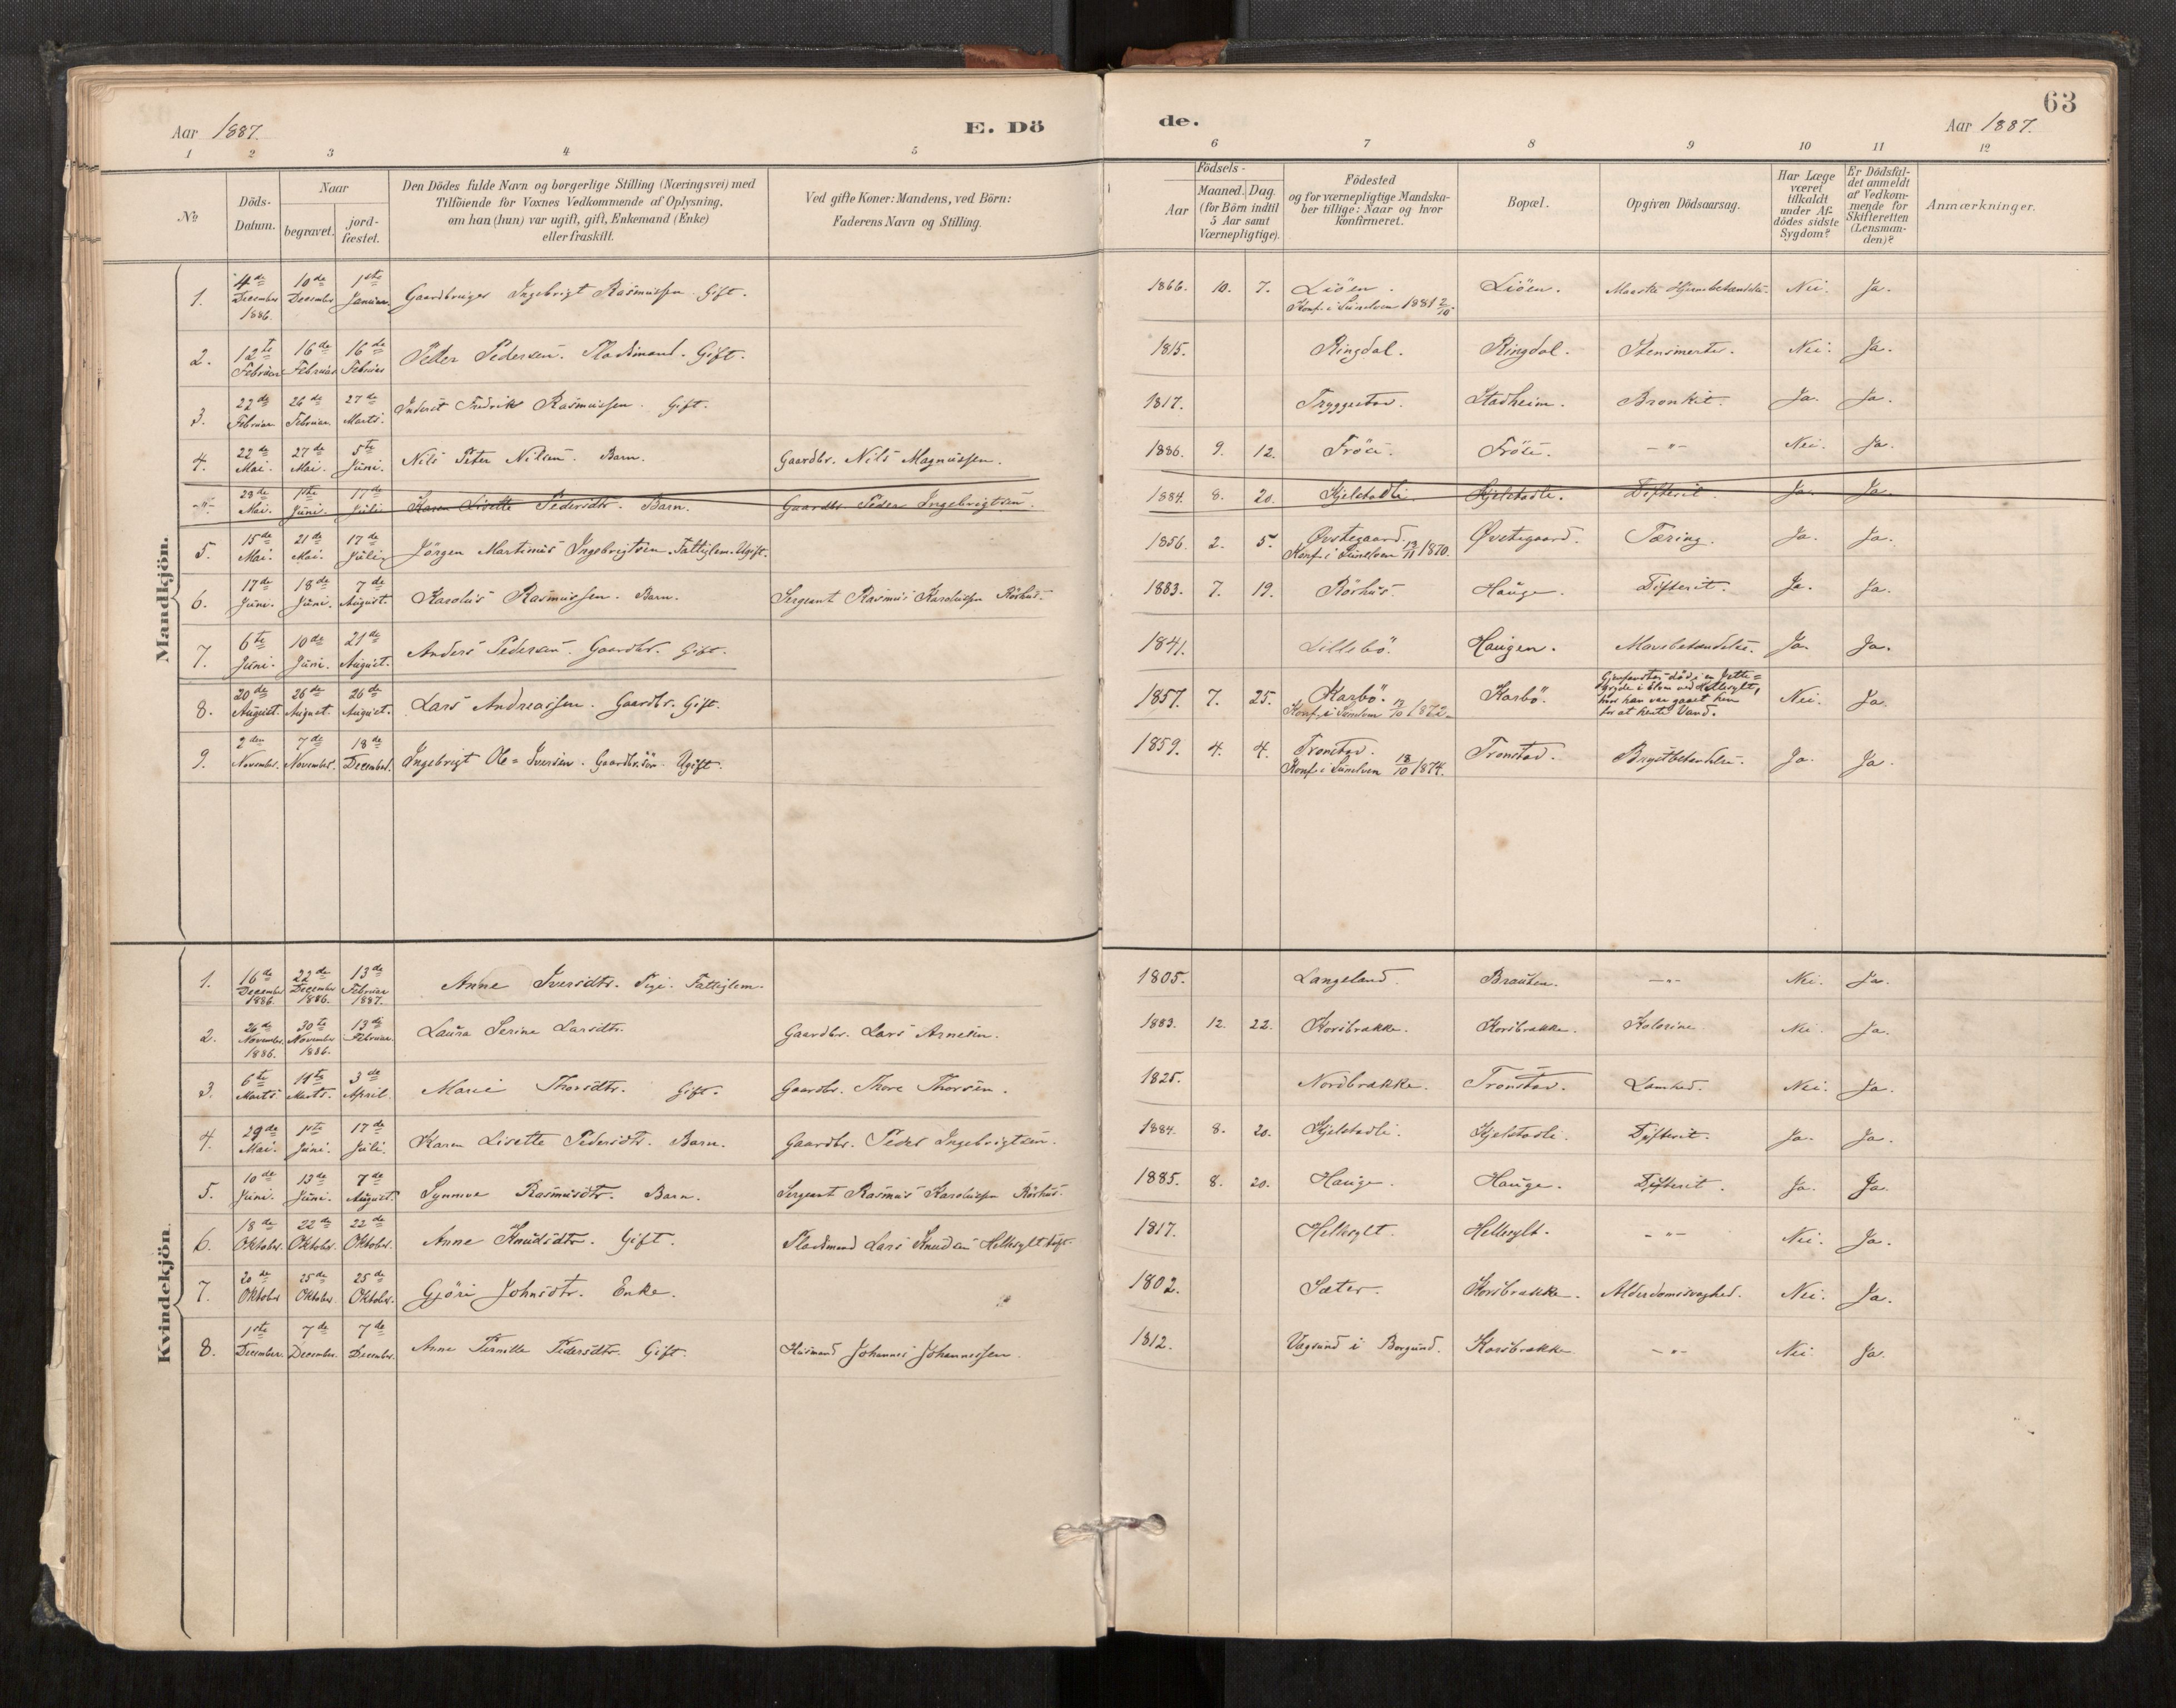 63
Aar 1887. E. Dö de. Aar 1887.
1 2 3 4 5 6 7 8 9 10 11 12
№
Döds-
Datum.
Naar
begravet.
jord-
fæstet.
Den Dödes fulde Navn og borgerlige Stilling (Næringsvei) med
Tilföiende for Voxnes Vedkommende af Oplysning,
om han (hun) var ugift, gift, Enkemand (Enke)
eller fraskilt.
Ved gifte Koner: Mandens, ved Börn:
Faderens Navn og Stilling.
Födsels-
Aar
Maaned. Dag.
(for Börn indtil
5 Aar samt
Værnepligtige).
Födested
og for værnepligtige Mandska-
ber tillige: Naar og hvor
konfirmeret.
Bopæl.
Opgiven Dödsaarsag.
Har Læge
været
tilkaldt
under Af-
dödes sidste
Sygdom?
Er Dödsfal-
det anmeldt
af Vedkom-
mende for
Skifteretten
(Lensman-
den)?
Anmærkninger.
Mandkjön.
1. 4de December 1886. 10de December 1ste Januar. Gaardbruger Ingebrigt Rasmussen. Gift. 1866. 10. 7. Liöen. Konf. i Sunelven 1881 2/10. Liöen. Nei. Ja.
2. 12te Februar 16de Februar 16de Februar Peter Pedersen. Pladsmand. Gift. 1815. Ringdal. Ringdal. Stensmerter. Nei. Ja.
3. 22de Februar 26de Februar. 27de Marts. Inderst Fredrik Rasmussen. Gift. 1817. Tryggestad. Stadheim. Bronkit. Ja. Ja.
4. 22de Mai. 27de Mai. 5te Juni. Nils Peter Nilsen. Barn. Gaardbr. Nils Magnussen. 1886. 9. 12. Fröen. Fröen. -"- Nei. Ja.
-"- 29de Mai. 1ste Juni. 17de Juli Karen Lisette Pedersdtr. Barn. Gaardbr. Peder Ingebrigtsen. 1884. 8. 20. Kjelstadli. Kjelstadli. Difterit. Ja. Ja.
5. 15de Mai. 21de Mai. 17de Juli Jörgen Martinus Ingebrigtsen. Fattiglem. Ugift. 1856. 2. 5. Øvstegaard. Konf. i Sunelven 1870. Øvstegaard. Tæring. Ja. Ja.
6. 17de Juni. 18de Juni. 7de August. Karolus Rasmussen. Barn. Sergeant Rasmus Karolussen Röshus. 1883. 7. 19. Röshus. Hauge. Difterit. Ja. Ja.
7. 6te Juni. 10de Juni. 21de August. Anders Pedersen. Gaardbr. Gift. 1841. Lillebö. Haugen. Mavebetændelse. Ja. Ja.
8. 20de August. 26de August. 26de August. Lars Andreassen. Gaardbr. Gift. 1857. 7. 25. Karbö. Konf. i Sunelven 1872. Karbö. Gjenfunden död i en Jette-
gryde i Elven ved Hellesylt,
hvor han var gaaet hen
for at hente Vand. Nei. Ja.
9. 2den November. 7de November. 18de December. Ingebrigt Ole Iversen. Gaardbr.sön. Ugift. 1859. 4. 4. Tronstad. Konf. i Sunelven 13/10 1874. Tronstad. Brystbetændelse. Ja. Ja.
Kvindekjön.
1. 16de December 1886. 22de December 1886. 13de Februar 1887. Anne Iversdtr. Pige. Fattiglem. 1805. Langeland. Brauten. -"- Nei. Ja.
2. 26de November. 1886. 30te November 1886. 13de Februar. Laura Serine Larsdtr. Gaardbr. Lars Arnesen. 1883. 12. 22. Korsbrække. Korsbrække. Kolerine Nei. Ja.
3. 6te Marts. 11te Marts. 3de April. Marie Thorsdtr. Gift. Gaardbr. Thore Thorsen. 1825. Nordbrække. Tronstad. Lamhed. Nei. Ja.
4. 29de Mai. 1ste Juni. 17de Juli. Karen Lisette Pedersdtr. Barn. Gaardbr. Peder Ingebrigtsen. 1884. 8. 20. Kjelstadli. Kjelstadli. Difterit. Ja. Ja.
5. 10de Juni. 13de Juni. 7de August. Synnøve Rasmusdtr. Barn. Sergeant Rasmus Karolussen Röshus. 1885. 8. 20. Hauge. Hauge. Difterit. Ja. Ja.
6. 18de Oktober. 22de Oktober. 22de Oktober. Anne Knudsdtr. Gift. Pladsmand Lars Knudsen Hellesylt 1817. Hellesylt. Hellesylt. -"- Nei. Ja.
7. 20de Oktober 25de Oktober 25de Oktober. Gjöri Johnsdtr. Enke. 1802. Sæter. Korsbrække. Alderdomssvaghed. Nei. Ja.
8. 1ste December. 7de December. 7de December. Anne Pernille Pedersdtr. Gift. Husmand Johannes Johannessen. 1812. Vegsund i Borgund. Korsbrække -"- Nei. Ja.